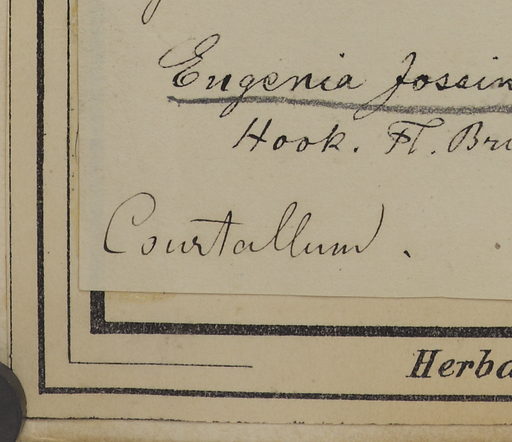 Eugenia Jossin
Hook. Fl. Bri
Courtallum.
Herba